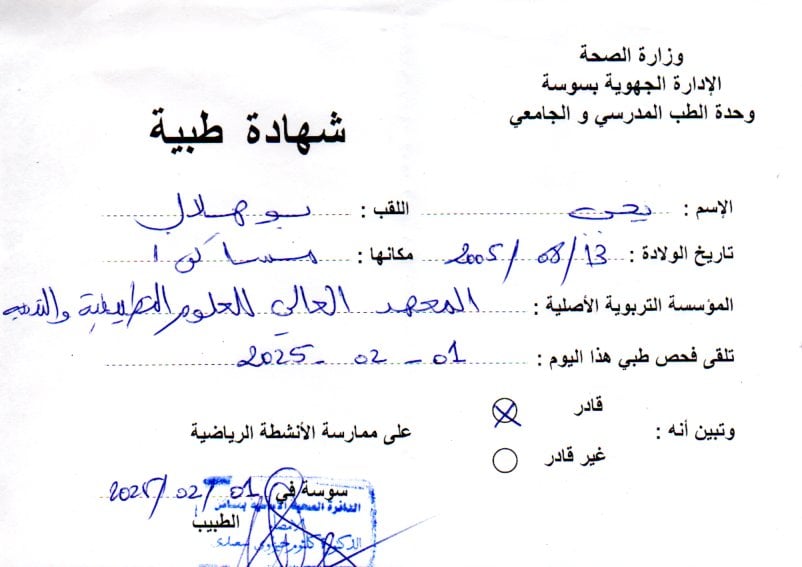 وزارة الصحة
الإدارة الجهوية بسوسة
وحدة الطب المدرسي و الجامعي
شهادة طبية
الإسم : يحي اللقب : بوهلال
تاريخ الولادة : 13/ 08/ 2005 مكانها : مساكن
المؤسسة التربوية الأصلية : المعهد العالي للعلوم التطبيقية و
تلقى فحص طبي هذا اليوم : 01 - 02 - 2025
وتبين أنه :
قادر
على ممارسة الأنشطة الرياضية
غير قادر
سوسة في 01/ 02/ 2025
الطبيب
الدائرة الصحية
الدكتورة